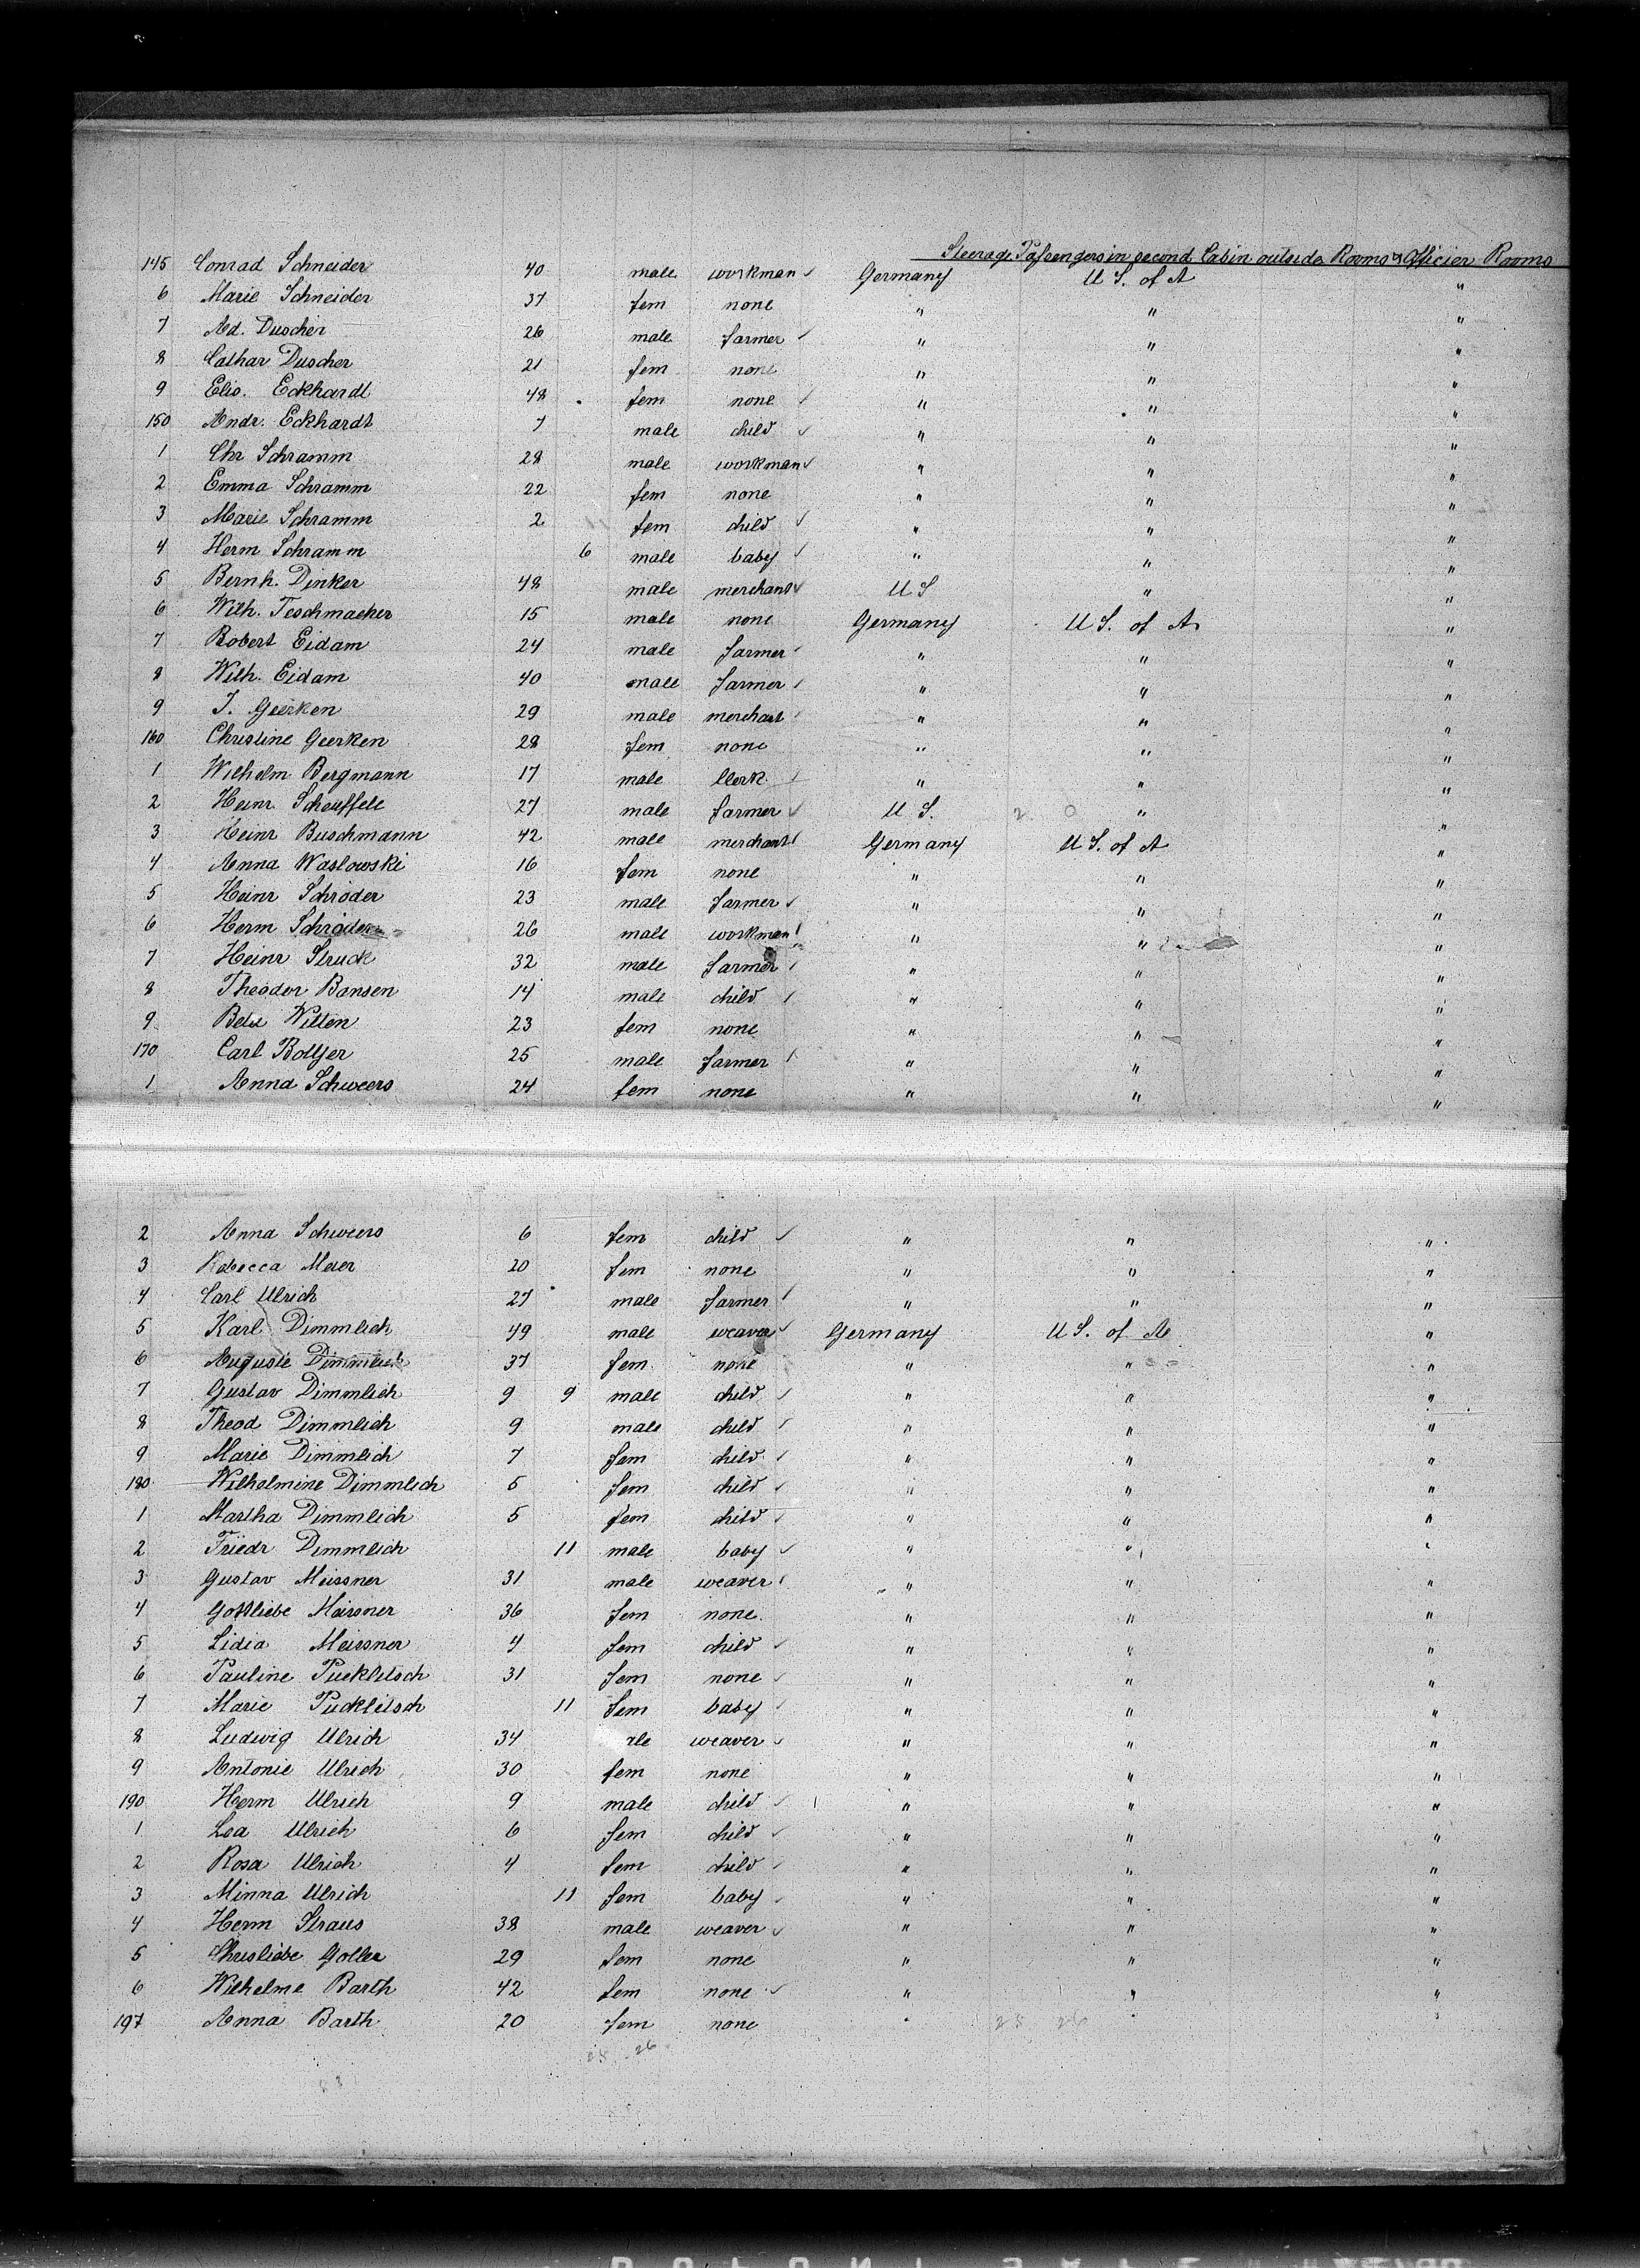 Steerage Passengers in second Cabin outside Rooms & Officier Rooms
145 Conrad Schneider 40 male workman ✓ Germany U S. of A "
6 Marie Schneider 37 fem none " " "
7 Ad. Duscher 26 male farmer ✓ " " "
8 Cathar Duscher 21 fem none " " "
9 Elis. Eckhardt 48 fem none ✓ " " "
150 Andr. Eckhardt 7 male child ✓ " " "
1 Chr Schramm 28 male workman ✓ " " "
2 Emma Schramm 22 fem none " " "
3 Marie Schramm 2 fem child ✓ " " "
4 Herm Schramm 6 male baby ✓ " " "
5 Bernh. Dinker 48 male merchant ✓ U S " "
6 Wilh. Teschmacher 15 male none Germany U S. of A "
7 Robert Eidam 24 male farmer ✓ " " "
8 Wilh. Eidam 40 male farmer ✓ " " "
9 J. Geerken 29 male merchant ✓ " " "
160 Christine Geerken 28 fem none " " "
1 Wilhelm Bergmann 17 male Clerk ✓ " " "
2 Heinr. Scheuffele 27 male farmer ✓ U S. 2 0 " "
3 Heinr Buschmann 42 male merchant ✓ Germany U S. of A "
4 Anna Waslowski 16 fem none " " "
5 Heinr Schröder 23 male farmer ✓ " " "
6 Herm Schröder 26 male workman ✓ " " "
7 Heinr Struck 32 male farmer ✓ " " "
8 Theodor Bansen 14 male child ✓ " " "
9 Witten 23 fem none " " "
170 Carl Boltjer 25 male farmer ✓ " " "
1 Anna Schweers 24 fem none " " "
2 Anna Schweers 6 fem child ✓ " " "
3 Rebecca Meier 20 fem none " " "
4 Carl Ulrich 27 male farmer ✓ " " "
5 Karl Dimmlich 49 male weaver ✓ Germany U S. of A "
6 Auguste Dimmlich 37 fem none " " "
7 Gustav Dimmlich 9 9 male child ✓ " " "
8 Theod Dimmlich 9 male child ✓ " " "
9 Marie Dimmlich 7 fem child ✓ " " "
180 Wilhelmine Dimmlich 5 fem child ✓ " " "
1 Martha Dimmlich 5 fem child ✓ " " "
2 Friedr Dimmlich 11 male baby ✓ " " "
3 Gustav Meissner 31 male weaver ✓ " " "
4 Gottliebe Meissner 36 fem none " " "
5 Lidia Meissner 4 fem child ✓ " " "
6 Pauline Pucklitsch 31 fem none ✓ " " "
7 Marie Pucklitsch 11 fem baby ✓ " " "
8 Ludwig Ulrich 34 ale weaver ✓ " " "
9 Antonie Ulrich 30 fem none " " "
190 Herm Ulrich 9 male child ✓ " " "
1 Lea Ulrich 6 fem child ✓ " " "
2 Rosa Ulrich 4 fem child ✓ " " "
3 Minna Ulrich 11 fem baby ✓ " " "
4 Herm Straus 38 male weaver ✓ " " "
5 Christliebe Goller 29 fem none " " "
6 Wilhelme Barth 42 fem none ✓ " " "
197 Anna Barth 20 fem none " 25 26 " "
28 26